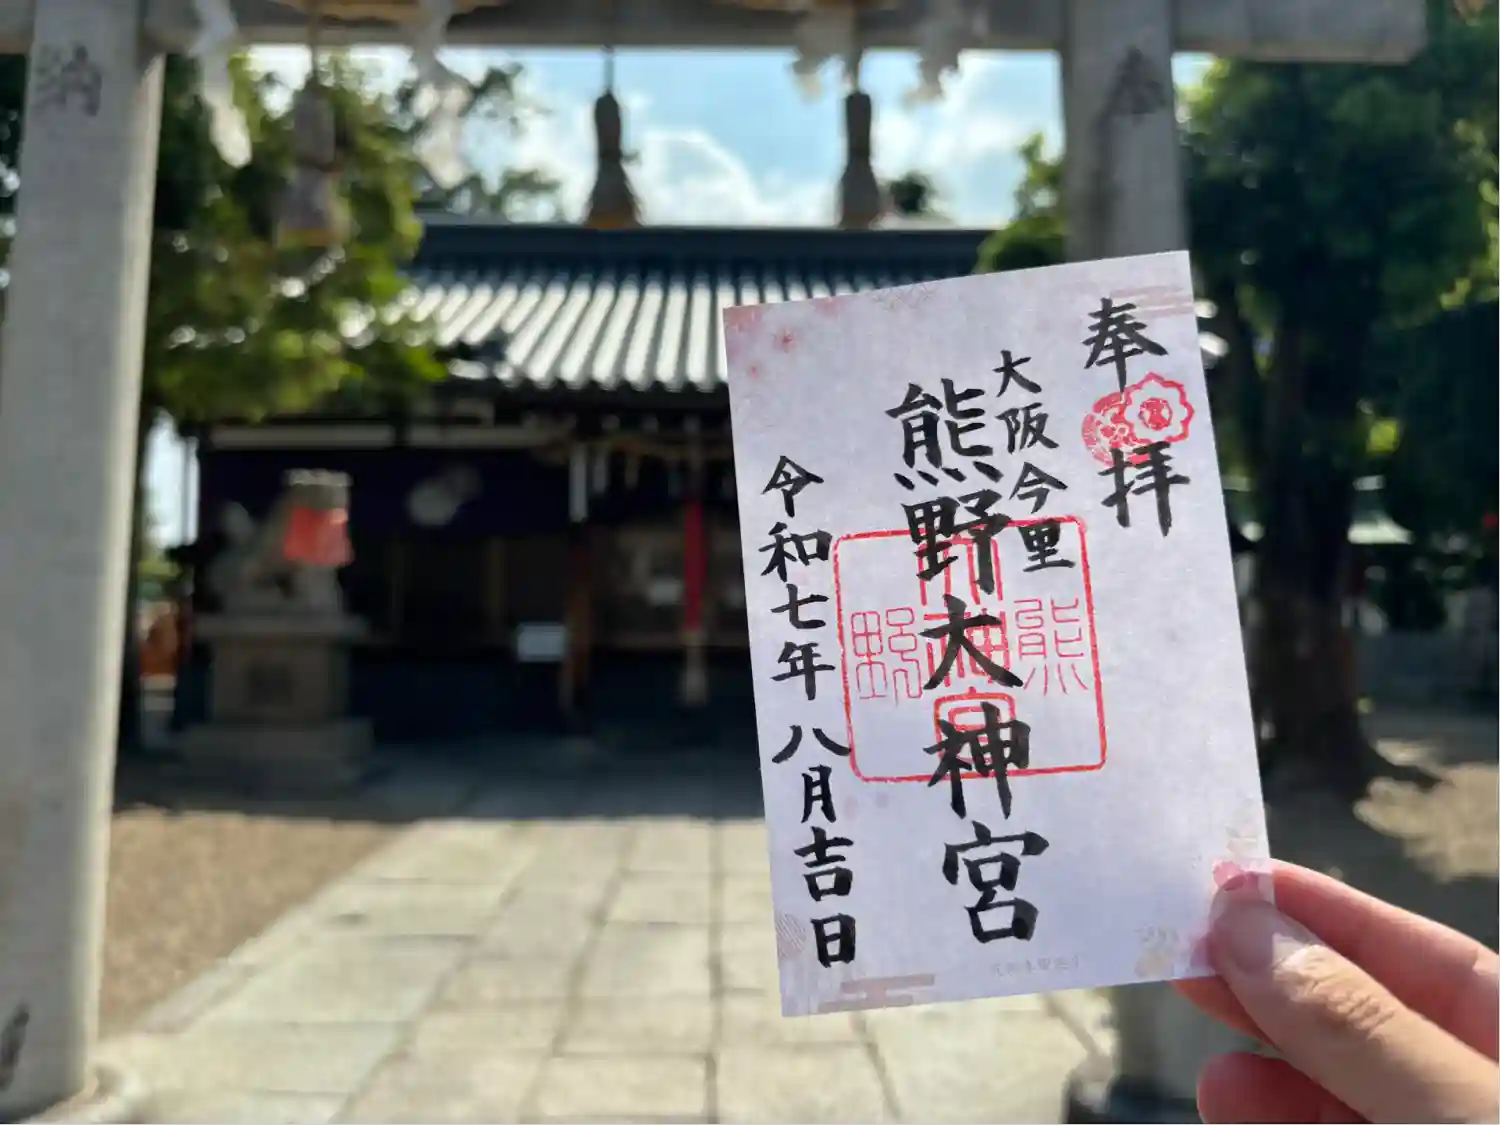 奉拝
大阪今里
熊野大神宮
令和七年八月吉日
熊野
神宮
納
奉